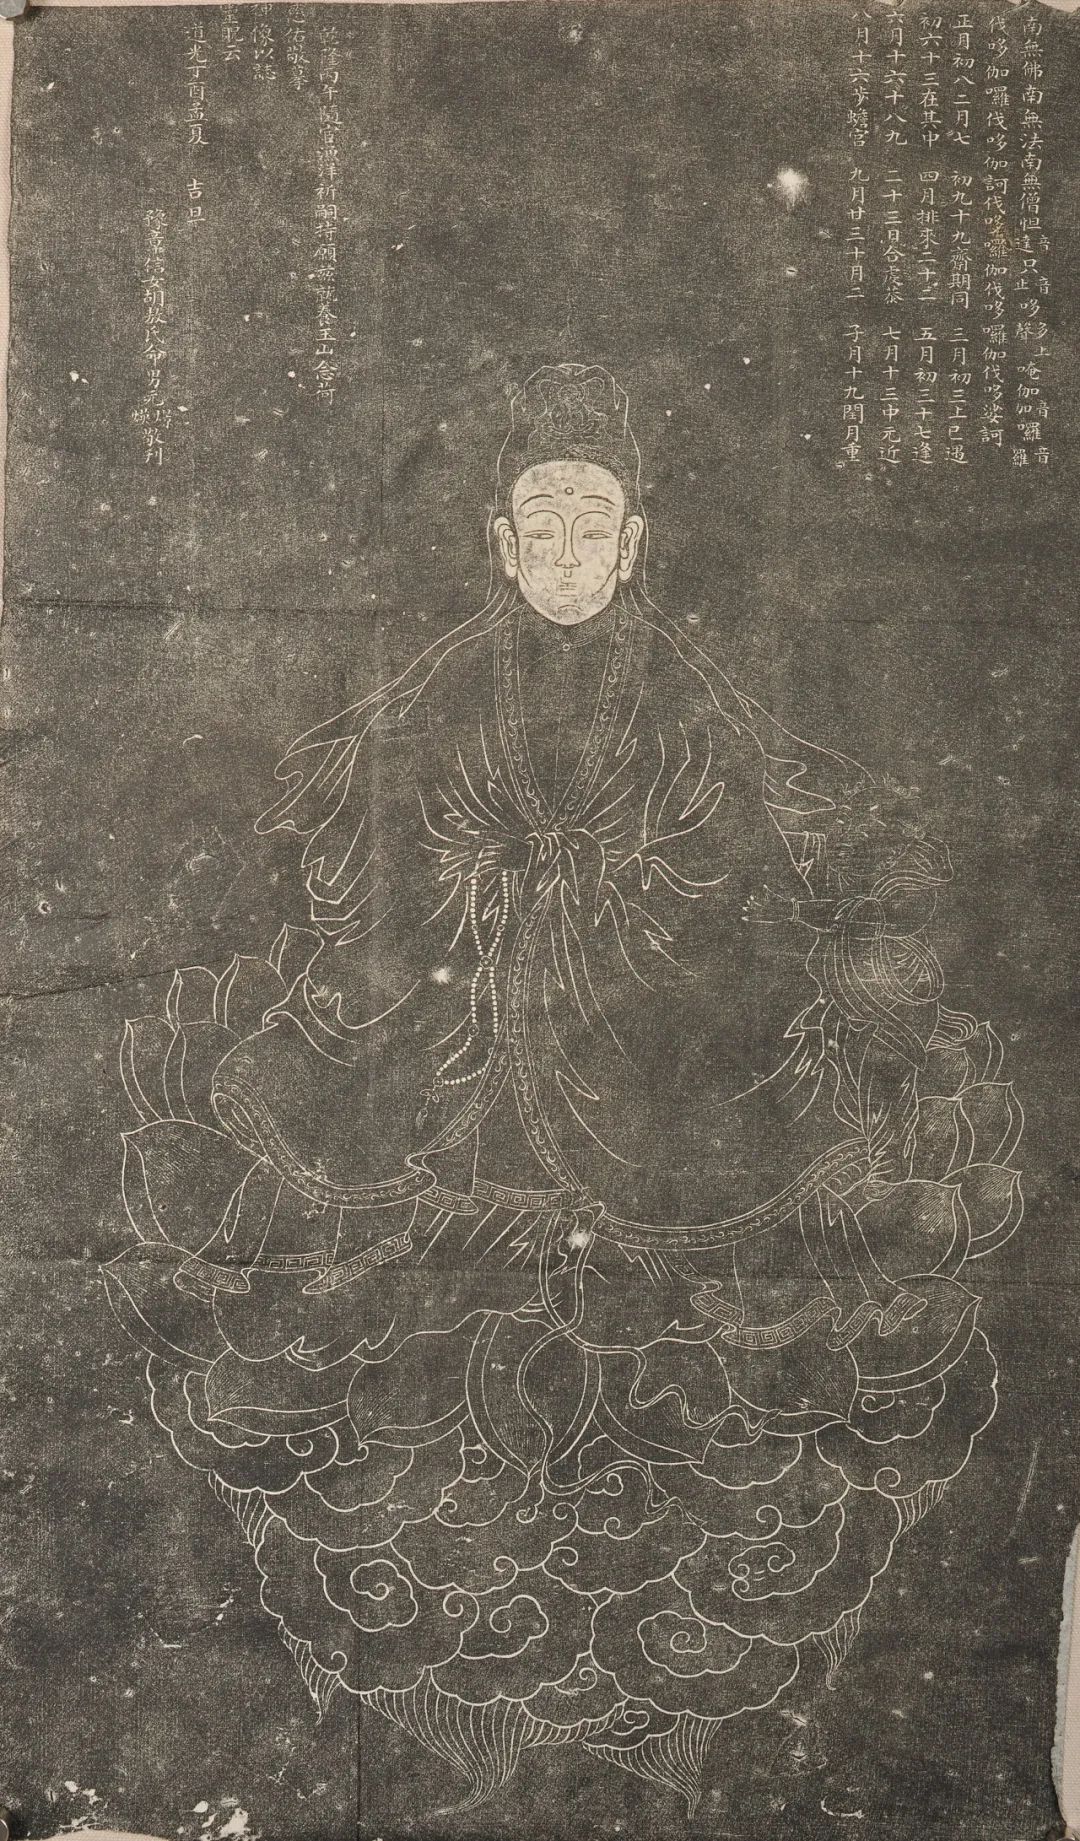 南無佛南無法南無僧怛達音只止音哆聲多上唵伽伽音囉羅音
伐哆伽囉伐哆伽訶伐哆囉伽伐哆囉伽伐哆娑訶
正月初八二月七 初九十九齋期同 三月初三上巳遇
初六十三在其中 四月排來二十二 五月初三十七逢
六月十六十八九 二十三日合虔恭 七月十三中元近
八月十六步蟾宮 九月廿三十月二 子月十九閏月重
乾隆丙午隨官澠洋祈嗣持願茲就養玉山念荷
慈佑敬摹
神像以誌
靈貺云
道光丁酉孟夏 吉旦
豫章信女胡敖氏命男元 敬刊